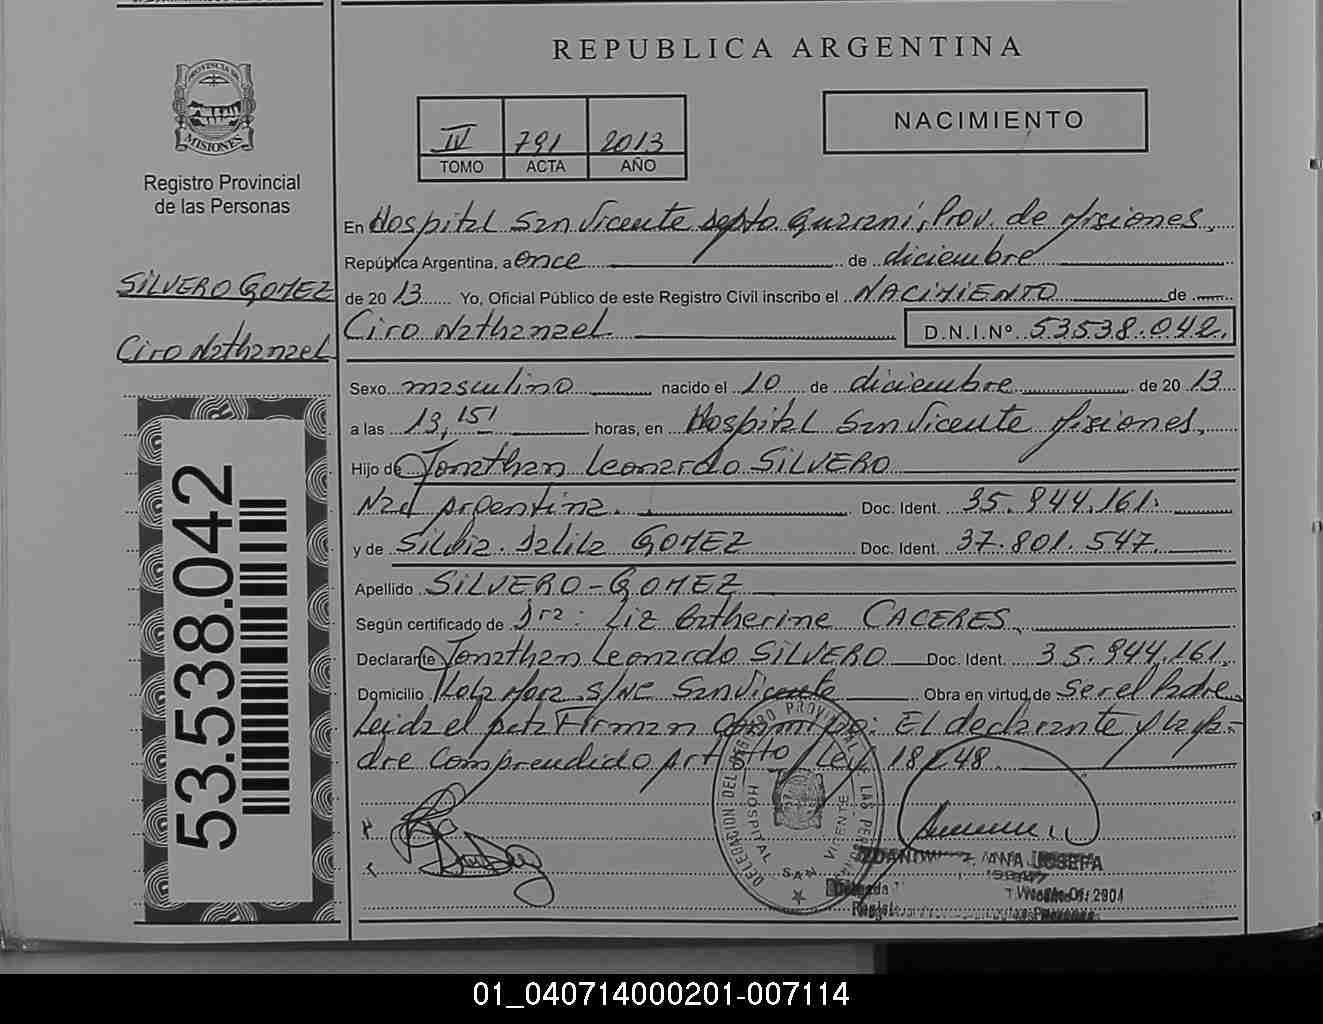 REPUBLICA ARGENTINA
PROVINCIA DE
MISIONES
Registro Provincial
de las Personas
IV 791 2013
TOMO ACTA AÑO
NACIMIENTO
En Hospital San Vicente depto. Guaraní, Prov. de Misiones,
República Argentina, a once de diciembre
de 2013 Yo, Oficial Público de este Registro Civil inscribo el NACIMIENTO de
Ciro Nathanael D.N.I.Nº 53538.042.
SILVERO GOMEZ
Ciro Nathanael
53.538.042
Sexo masculino nacido el 10 de diciembre de 2013
a las 13,15' horas, en Hospital San Vicente Misiones,
Hijo de Jonathan Leonardo SILVERO
Nac Argentina. Doc. Ident. 35.944.161.
y de Silvia Dalila GOMEZ Doc. Ident. 37.801.547
Apellido SILVERO-GOMEZ
Según certificado de Dra: Liz Catherine CACERES
Declarante Jonathan Leonardo SILVERO Doc. Ident. 35.944.161.
Domicilio s/Nº San Vicente Obra en virtud de ser el Padre
Leida el acta Firman conmigo: El declarante y la
dre Comprendido Art Ley 18248
DELEGACION DEL REGISTRO PROVINCIAL DE LAS PERSONAS
HOSPITAL SAN VICENTE
ANA JOSEFA
01_040714000201-007114